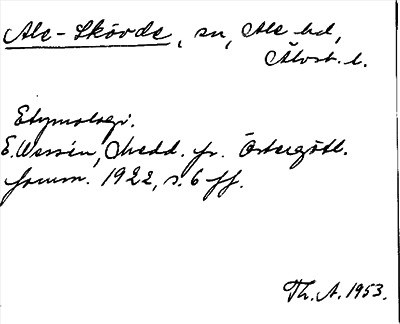 Ale-Skövde, sn, Ale hd,
Älvsb. l.
Etymologi.
E. Wessén, Medd. fr. Östergötl.
fornm. 1922, s. 6 ff.
Th. A. 1953.